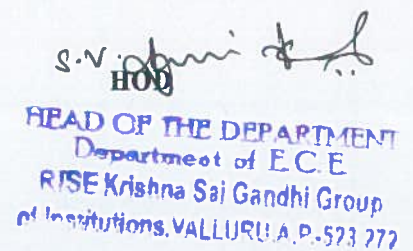 S.V.
HOD
HEAD OF THE DEPARTMENT
Department of E.C.E
RISE Krishna Sai Gandhi Group
of Institutions, VALLURU A.P.-523 272